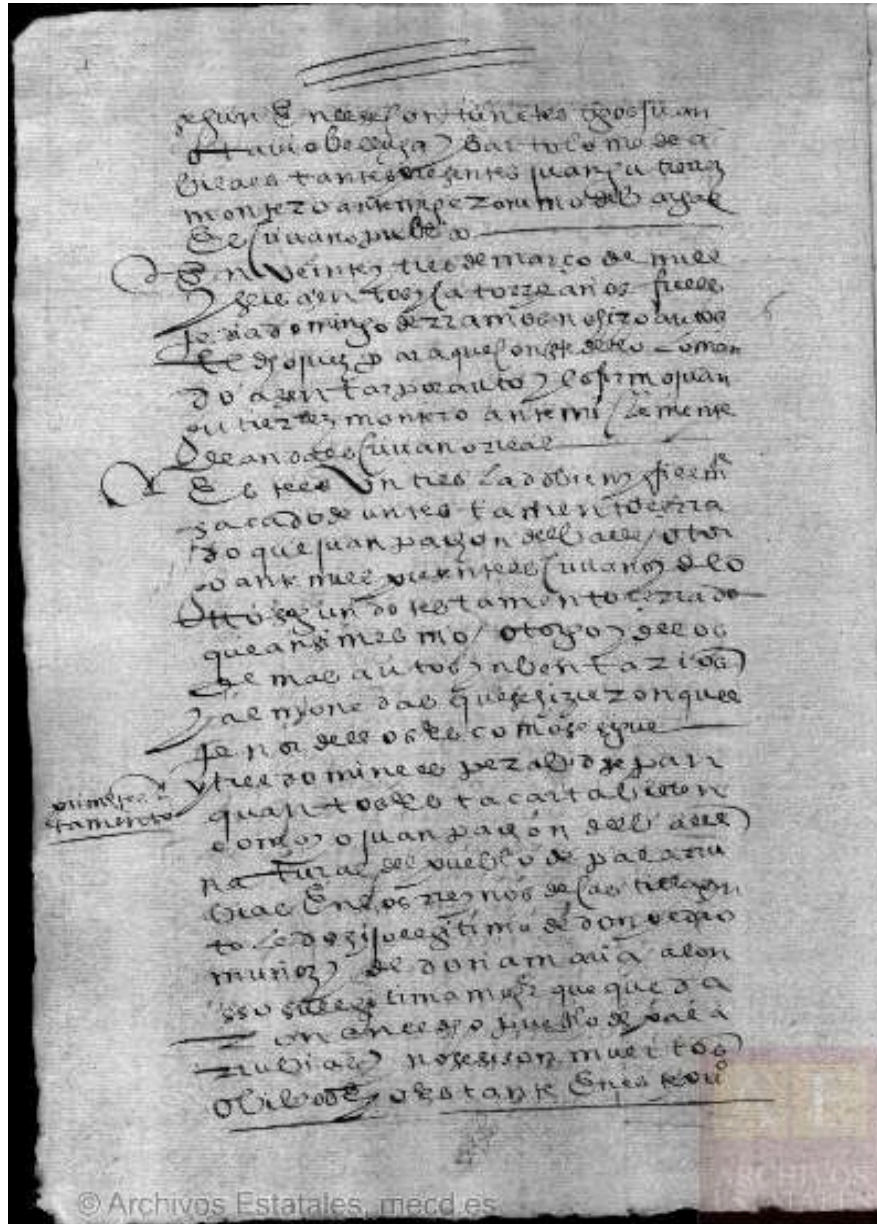 segun en el se contiene tgos juan
otavio belluga y bartolome de a
bila estantes presentes juan gutierrez
montero ante mi geronimo del aguila
escrivano puco
En veinte y tres de março de mill
y seis cientos y catorze años fiesta
domingo de rramos no hizo autos
el dho juez para que conste dello lo man
do asentar por auto y lo firmo juan
gutierrez montero ante mi clemente
escrivano real
Este es Un treslado bien y fielmte
sacado de un testamento cerra
do que juan payon del valle otor
go ante mi el presente escrivano y de lo
otro segundo testamento cerrado
que ansi mesmo otorgo y de los
demas autos ynbentazios
y almonedas que se hizieron quel
tenor dellos es como se sigue
primer tes
tamento
yn dei domine sepan
quantos esta carta bieren
como yo juan payon del valle
natural del pueblo de palazu
bias en los rreynos de castilla
hijo legitimo de don pedro
muñoz y de doña maria alon
sso su legitima muger que queda
ron en el dho pueblo de pala
zubias y no se si son muertos
o bibos estante en este pu
© Archivos Estatales, mecd.es
ARCHIVOS
ESTATALES